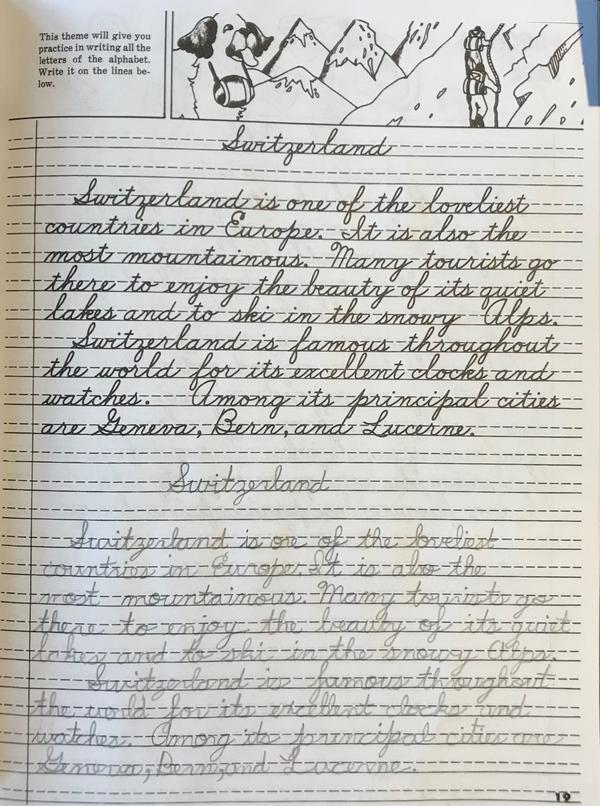 This theme will give you
practice in writing all the
letters of the alphabet.
Write it on the lines be-
low.
Switzerland
Switzerland is one of the loveliest
countries in Europe. It is also the
most mountainous. Many tourists go
there to enjoy the beauty of its quiet
lakes and to ski in the snowy Alps.
Switzerland is famous throughout
the world for its excellent clocks and
watches. Among its principal cities
are Geneva, Bern, and Lucerne.
Switzerland
Switzerland is one of the loveliest
countries in Europe. It is also the
most mountainous. Many tourists go
there to enjoy the beauty of its quiet
lakes and to ski in the snowy Alps.
Switzerland is famous throughout
the world for its excellent clocks and
watches. Among its principal cities are
Geneva, Bern, and Lucerne.
19